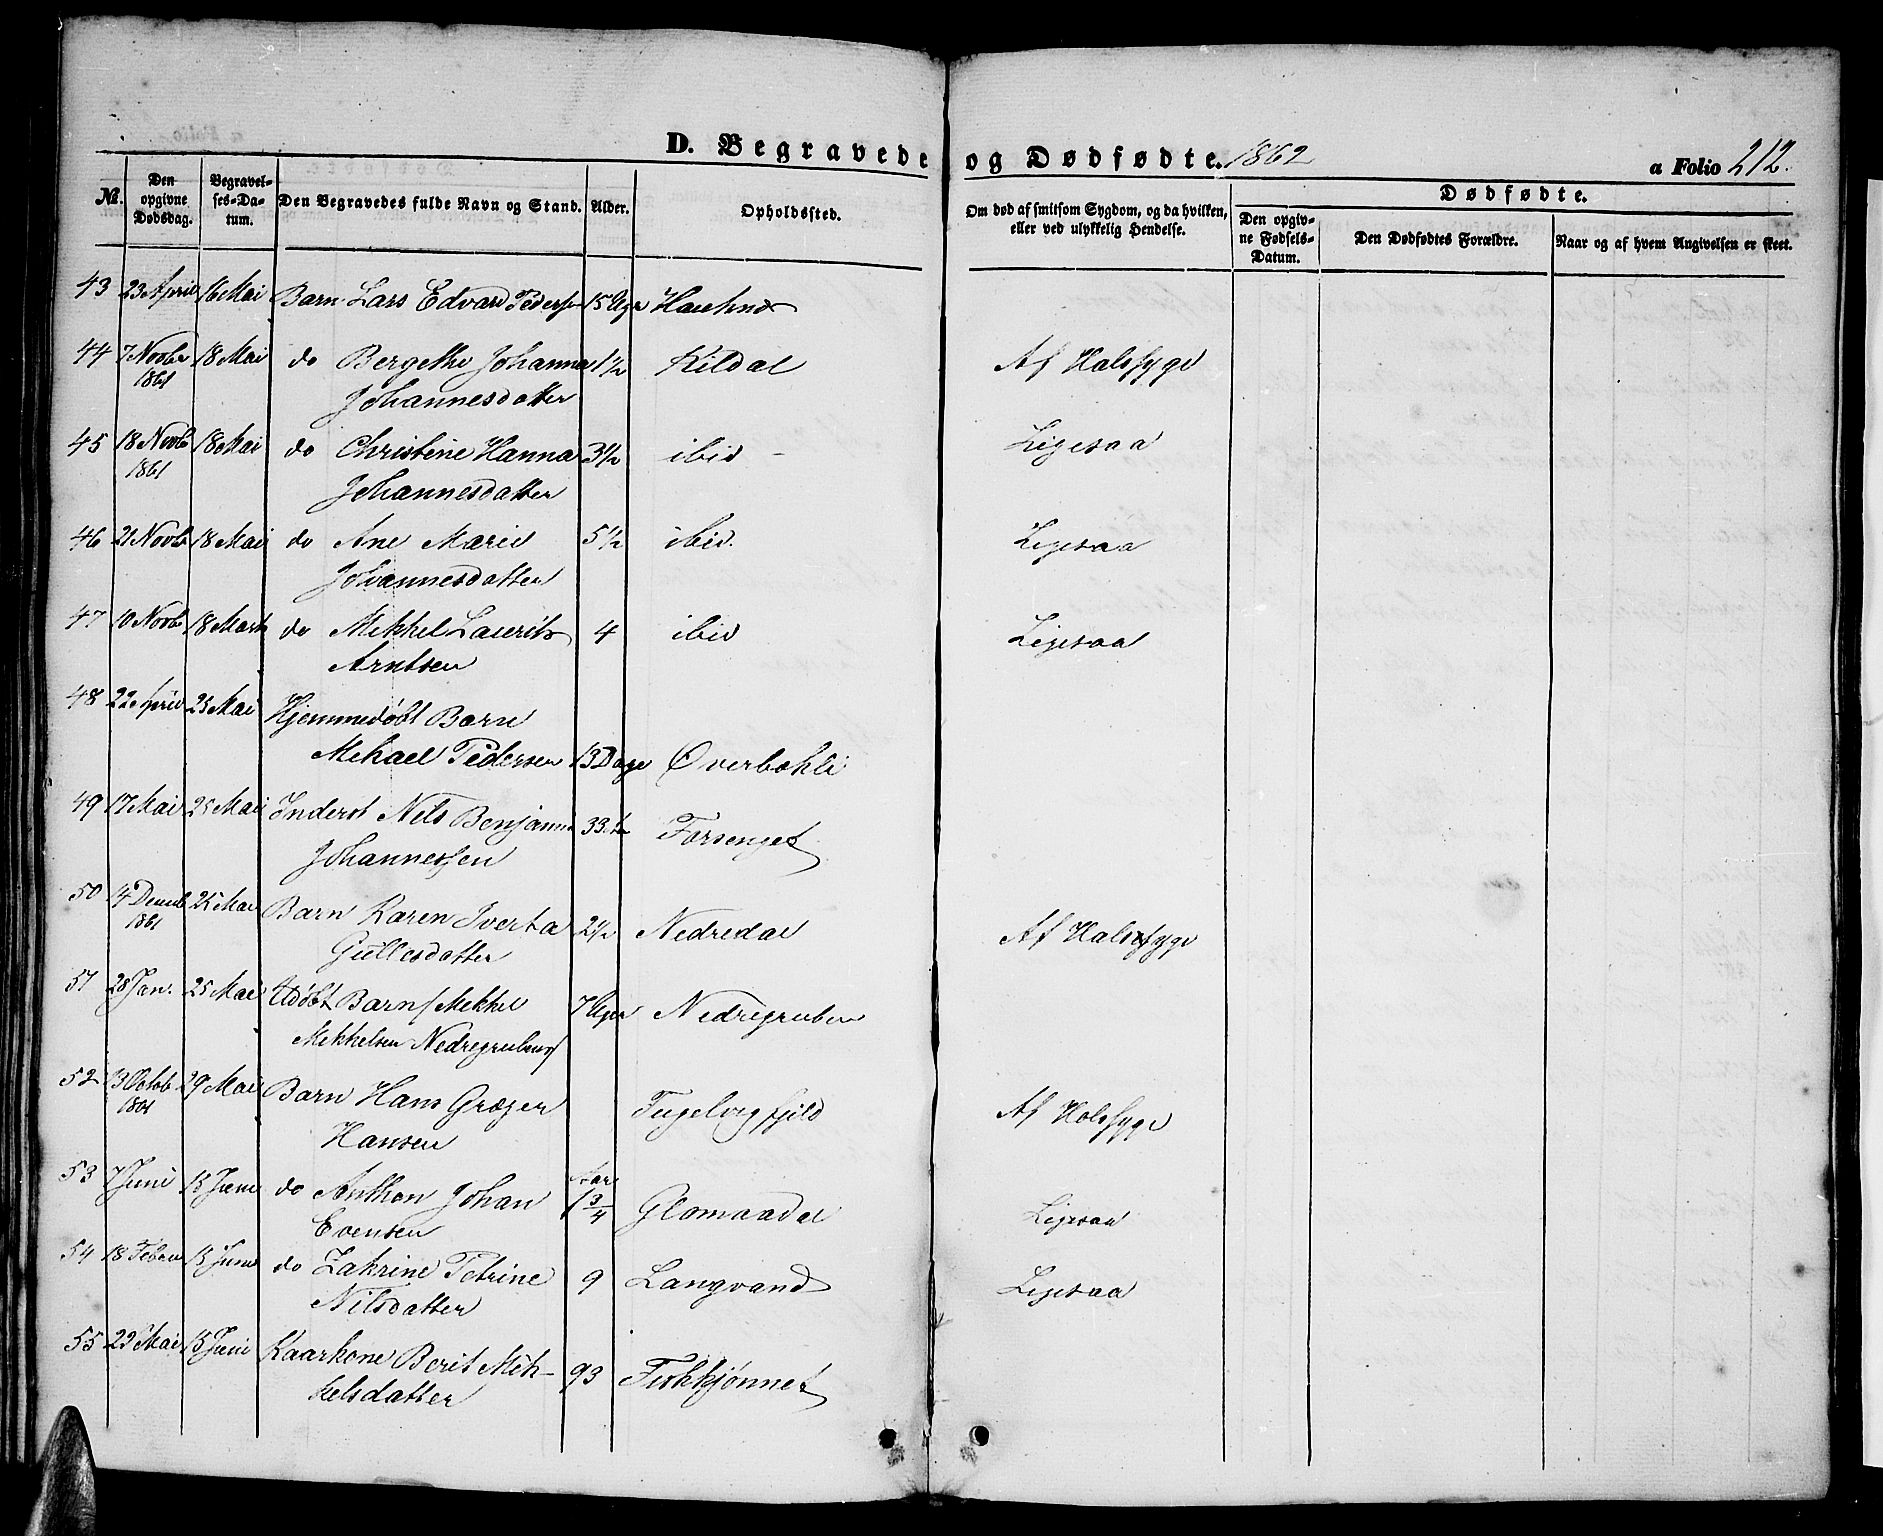 D. Begravede og Dødfødte. 1862 a Folio 212.
No. Den opgivne Dødsdag. Begravelses-Datum. Den Begravedes fulde Navn og Stand. Alder. Opholdssted. Om død af smitsom Sygdom, og da hvilken, eller ved ulykkelig Hendelse. Dødfødte.
Den opgivne Fødsels-Datum. Den Dødfødtes Forældre. Naar og af hvem Angivelsen er skeet.
43 23 April 16 Mai Barn Lars Edvard Pedersen 15 Uger
44 7 Novbr 18 Mai do Bergethe Johanna 1½ Kildal Af Halssyge
1861 Johannesdatter
45 18 Novb 18 Mai do Christine Hanna 3½ ibid - Ligesaa
1861 Johannesdatter
46 21 Novb 18 Mai do Ane Marie 5½ ibid. Ligesaa
Johannesdatter
47 10 Novb 18 Marts do Mikkel Laurits 4 ibid Ligesaa
Arntsen
48 22 April 25 Mai Hjemmedøbt Barn
Mikael Pedersen 13 Dage Øverbakli
49 17 Mai 25 Mai Inderst Nels Benjamin 33 Forsenget
Johannessen
50 4 Decemb 25 Mai Barn Karen Iverta 2½ Nedredal Af Halssyge
1861 Gullesdatter
51 28 Jan. 25 Mai Udøbt Barn / Mikkel 7 Uger Nedregruben
Mikkelsen Nedregruben /
52 13 Octob 29 Mai Barn Hans Græger Fugelvigfjeld Af Halssyge
1861 Hansen
53 7 Juni 15 Juni do Anthon Johan Aar 1¾ Glomaadal Ligesaa
Evensen
54 18 Febru 15 Juni do Zakrine Petrine 9 Langvand Ligesaa
Nilsdatter
55 29 Mai 15 Juni Kaarkone Berit Mik- 93 Fiskkjønnet
kelsdatter